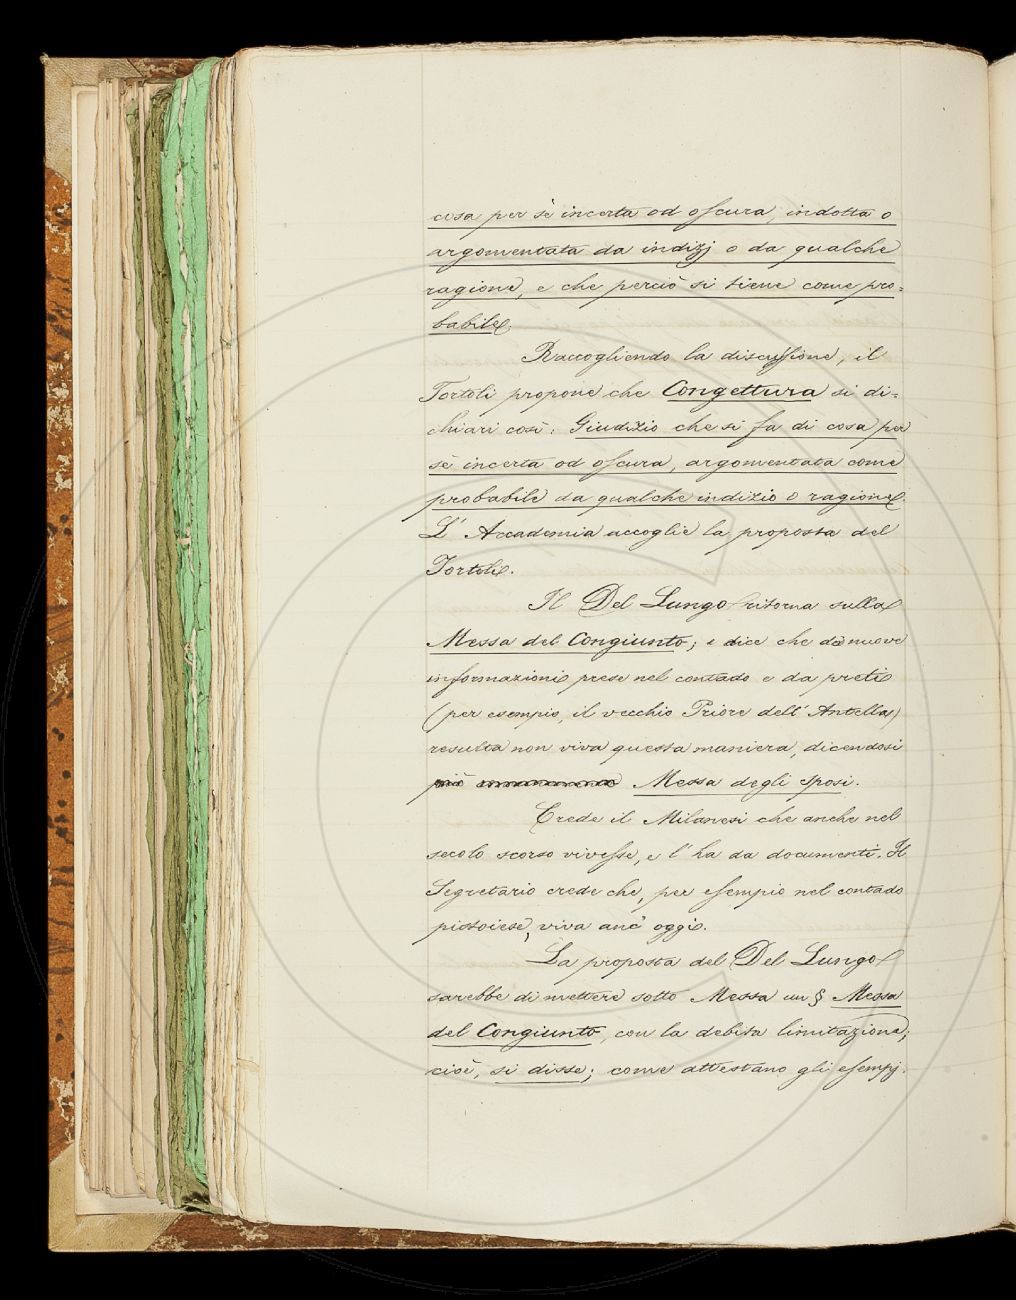 cosa per sè incerta od oscura, indotta o
argomentata da indizj o da qualche
ragione, e che perciò si tiene come pro=
babile.
Raccogliendo la discussione, il
Tortoli propone che Congettura si di=
chiari così: Giudizio che si fa di cosa per
sè incerta od oscura, argomentata come
probabile da qualche indizio o ragione.
L'Accademia accoglie la proposta del
Tortoli.
Il Del Lungo ritorna sulla
Messa del Congiunto; e dice che da nuove
informazioni prese nel contado e da preti
(per esempio, il vecchio Priore dell'Antella)
resulta non viva questa maniera, dicendosi
più Messa degli sposi.
Crede il Milanesi che anche nel
secolo scorso vivesse, e l'ha da documenti. Il
Segretario crede che, per esempio nel contado
pistoiese, viva anc'oggi.
La proposta del Del Lungo
sarebbe di mettere sotto Messa un § Messa
del Congiunto, con la debita limitazione,
cioè, si disse; come attestano gli esempj.